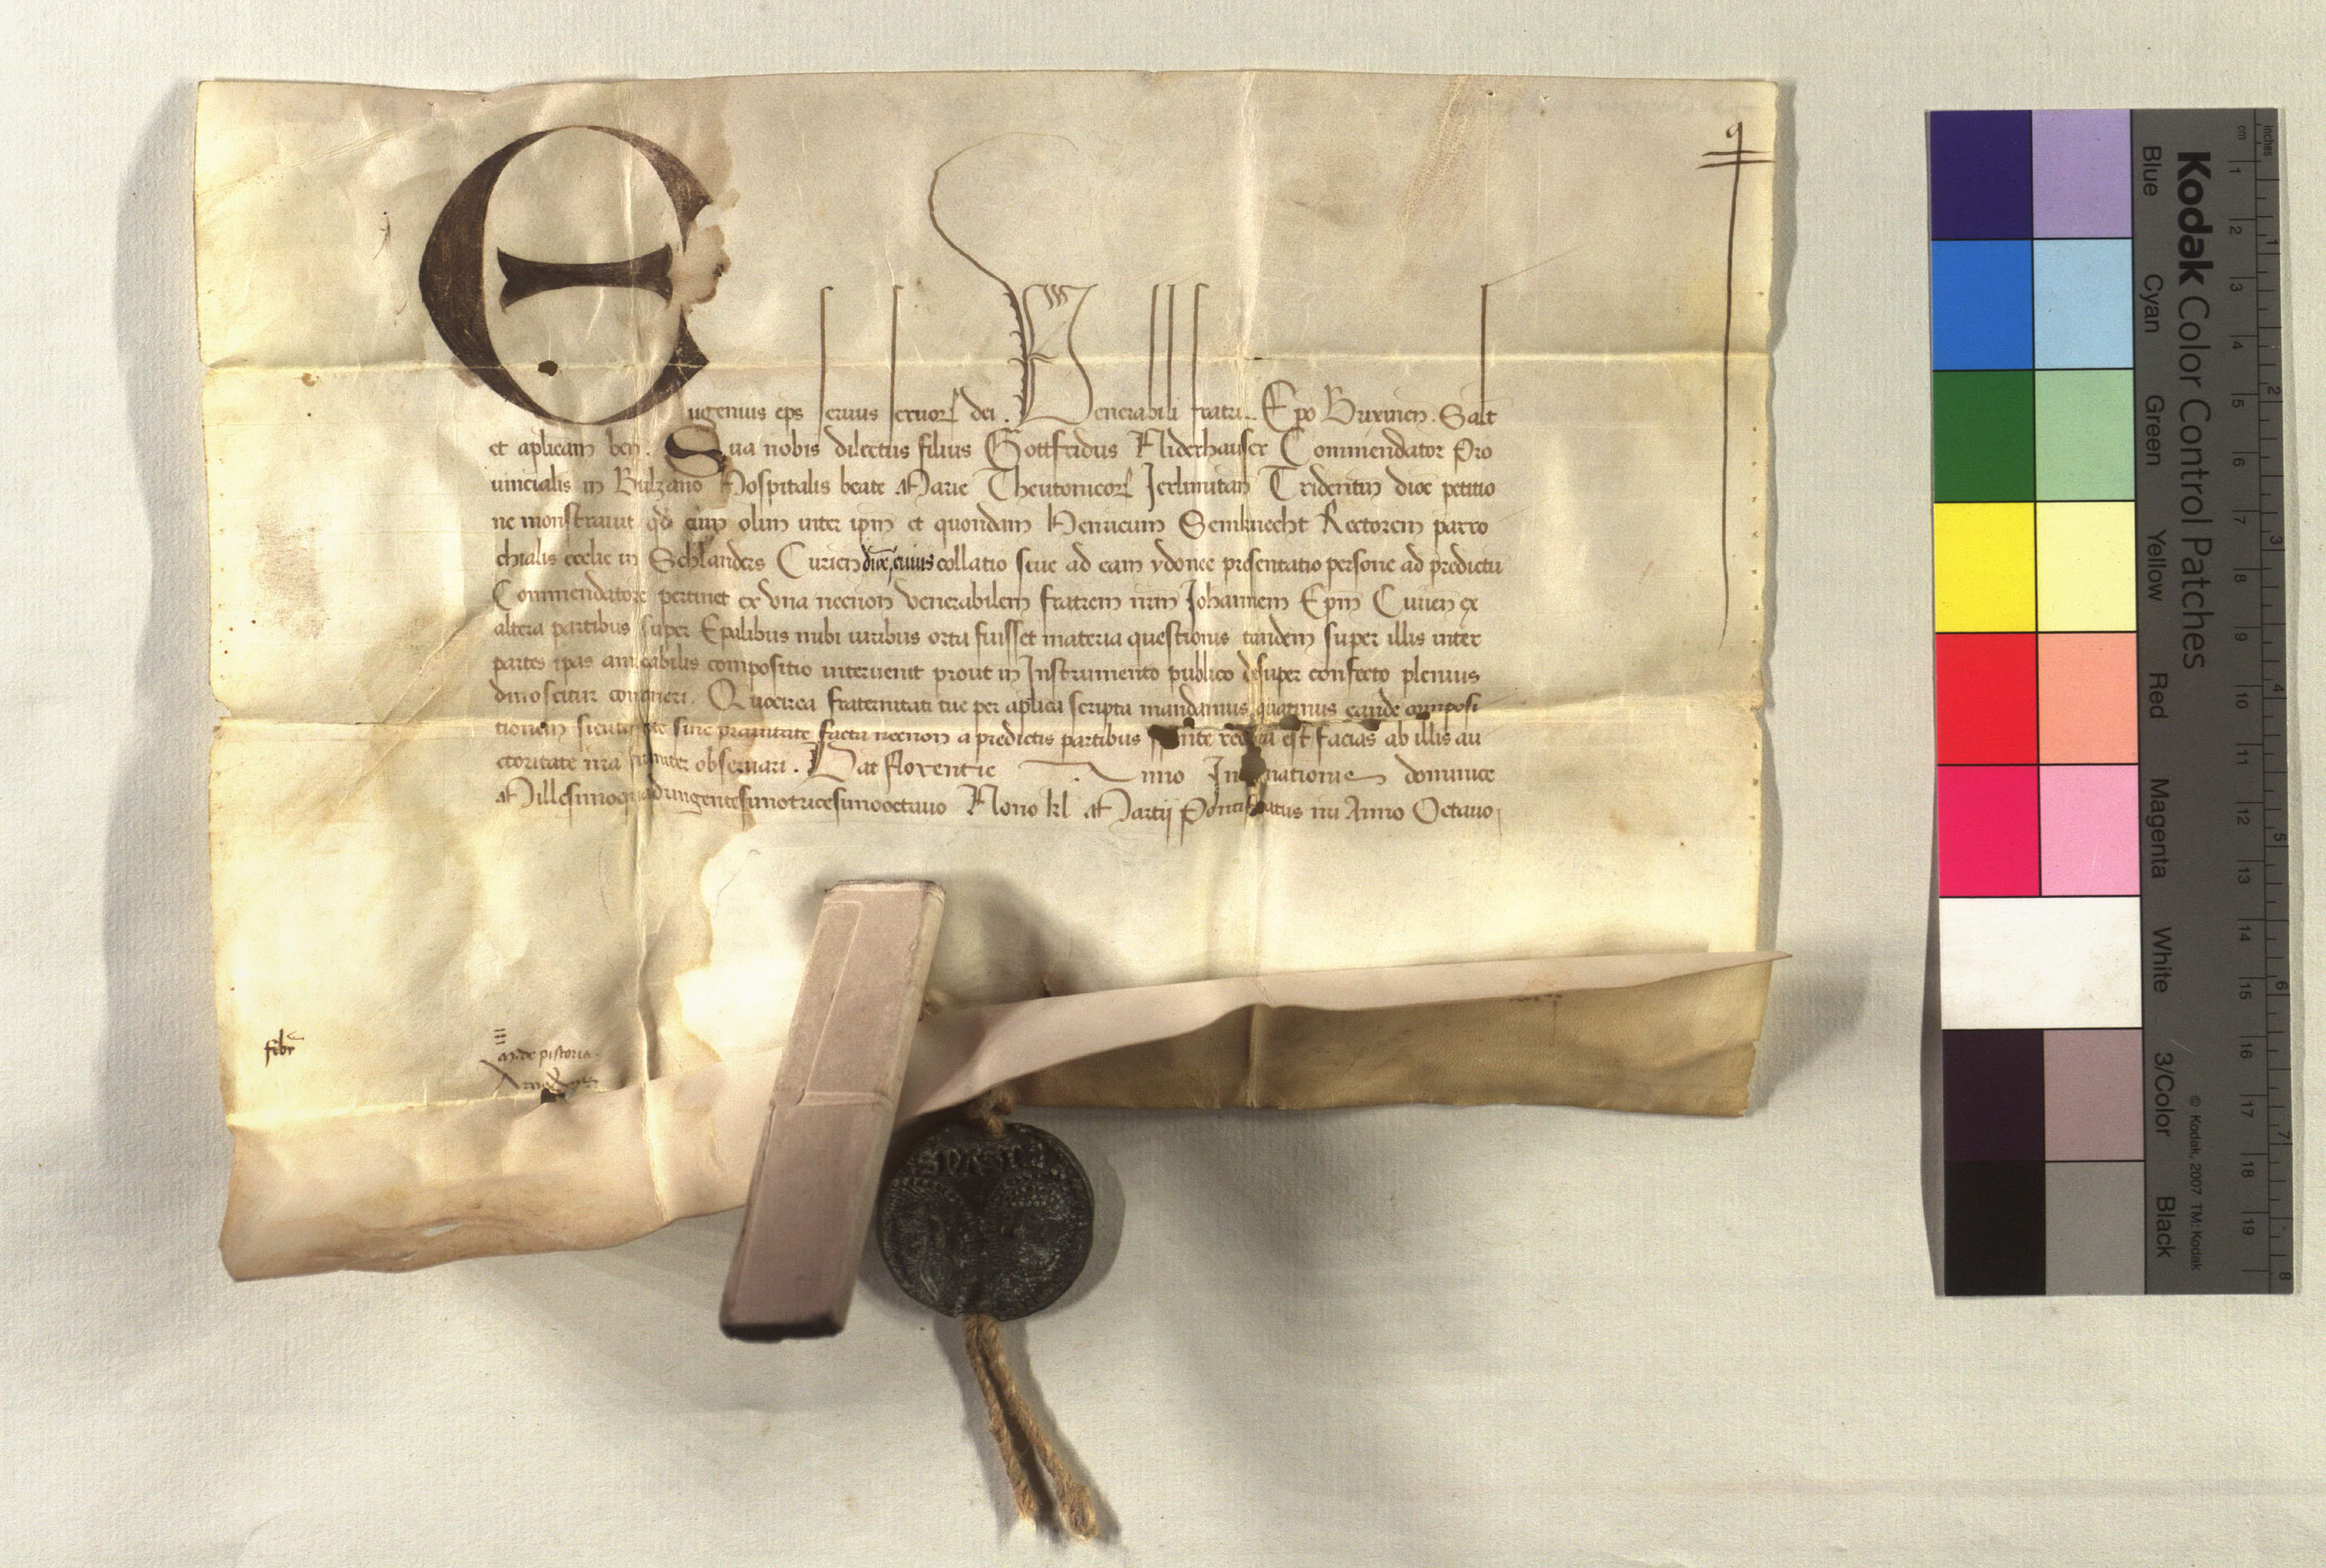 Eugenius eps seruus seruoꝝ dei. Venerabili fratri.. Epo Brixinen. Salt
et aplicam ben. Sua nobis dilectus filius Gottfridus Niderhauser Commendator Pro
uincialis in Bulzano Hospitalis beate Marie Theutonicoꝝ Jerlimitan Tridentin dioc petitio
ne monstrauit qd cum olim inter ipm et quondam Henricum Semknecht Rectorem parro
chialis ecclie in Schlanders Curien dioc, cuius collatio siue ad eam ydonee presentatio persone ad predictu
Commendatore pertinet ex vna necnon venerabilem fratrem nrm Johannem Epm Curien ex
altera partibus super Epalibus iuribus orta fuisset materia questionis tandem super illis inter
partes ipas amicabilis compositio interuenit prout in Instrumento publico desuper confecto plenius
dinoscitur contineri. Quocirca fraternitati tue per aplica scripta mandamus quatinus eande composi
tionem sicut sine prauitate facta necnon a predictis partibus recepta est facias ab illis au
ctoritate nra firmiter obseruari. Dat Florentie Anno Incarnationis dominice
Millesimoquadringentesimotricesimooctauo Nono kl Martij Pontificatus nri Anno Octauo
fibr
m. de pistorio.
Kodak Color Control Patches
Blue Cyan Green Yellow Red Magenta White 3/Color Black
© Kodak, 2007 TM: Kodak
cm 1 2 3 4 5 6 7 8 9 10 11 12 13 14 15 16 17 18 19
inches 1 2 3 4 5 6 7 8